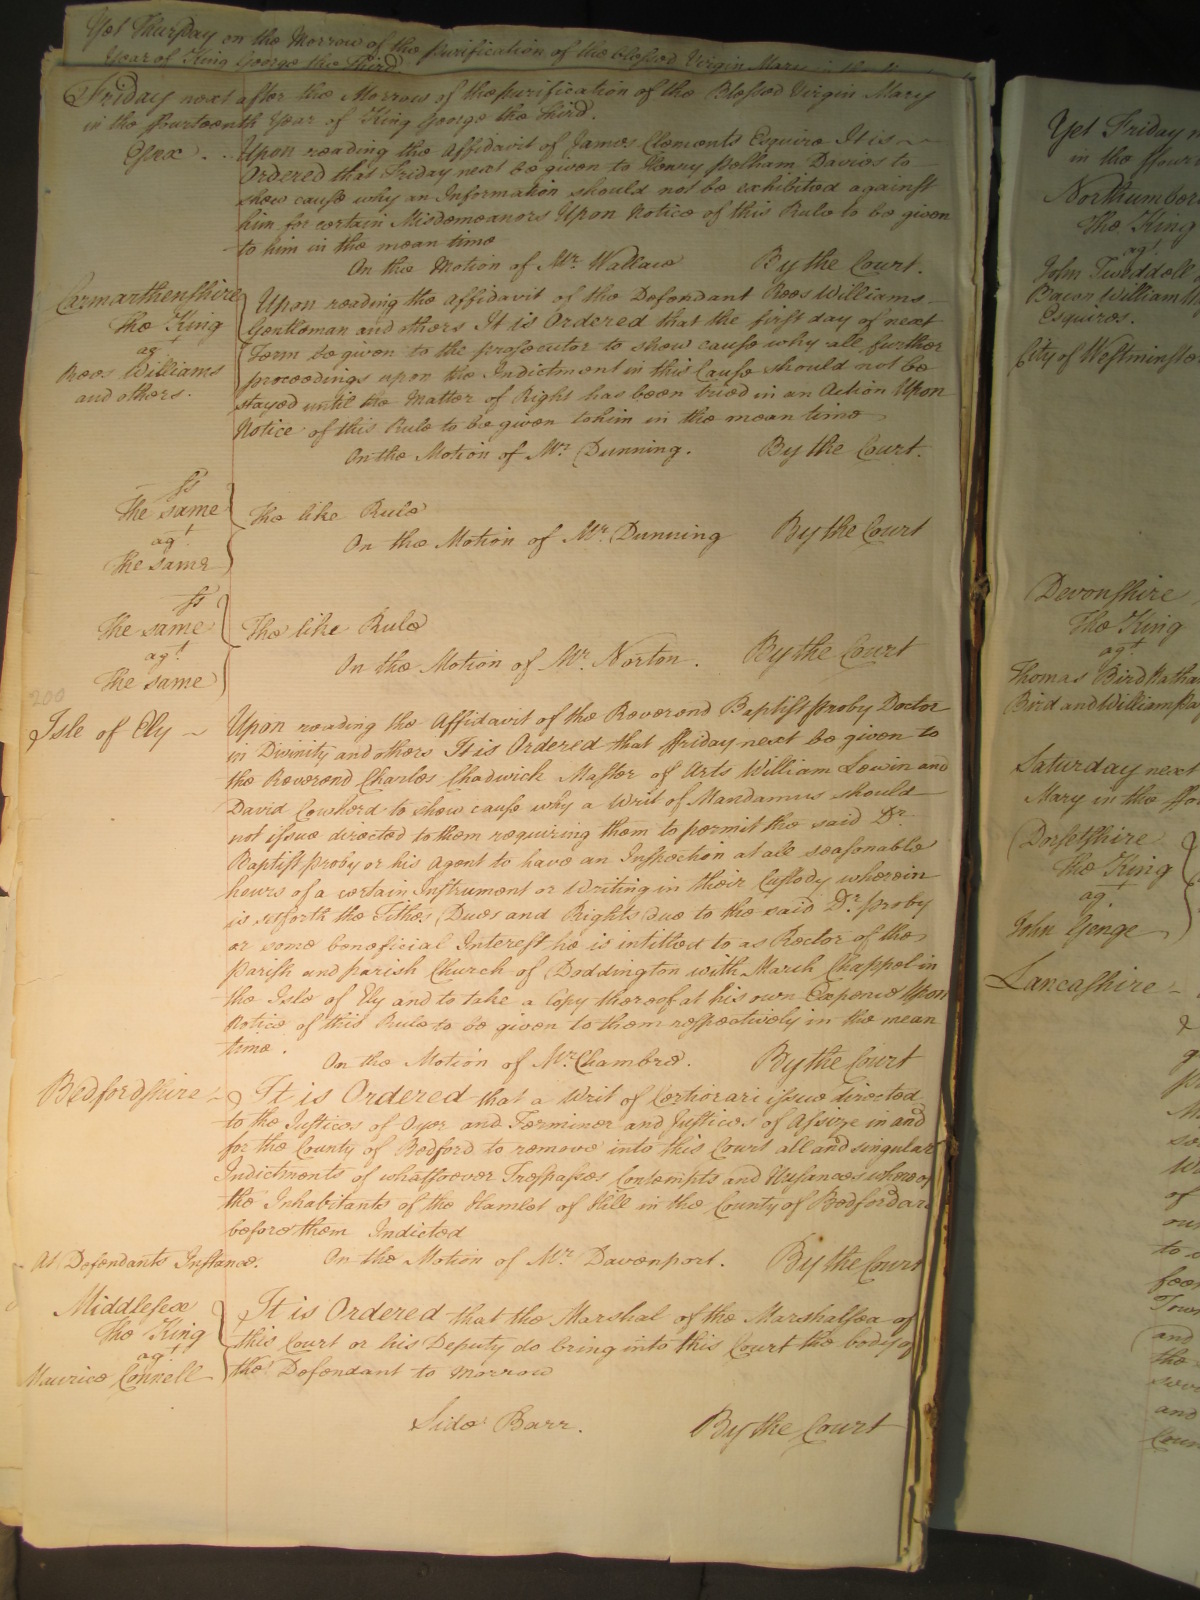 Yet Thursday on the Morrow of the Purification of the Blessed Virgin Mary in the
Year of King George the Third
Friday next after the Morrow of the purification of the Blessed Virgin Mary
in the ffourteenth Year of King George the Third.
Essex . . Upon reading the Affidavit of James Clements Esquire It is
Ordered that Friday next be given to Henry Pelham Davies to
shew cause why an Information should not be exhibited against
him for certain Misdemeanors Upon Notice of this Rule to be given
to him in the mean time
On the Motion of Mr. Wallace By the Court.
Carmarthenshire
The King
agt
Rees Williams
and others.
Upon reading the Affidavit of the Defendant Rees Williams
Gentleman and others It is Ordered that the first day of next
Term be given to the prosecutor to shew cause why all further
proceedings upon the Indictment in this Cause should not be
stayed until the Matter of Right has been tried in an Action Upon
Notice of this Rule to be given to him in the mean time
On the Motion of Mr. Dunning. By the Court.
ss
The same
agt.
The same
The like Rule
On the Motion of Mr. Dunning By the Court
ss
The same
agt.
The same
The like Rule
On the Motion of Mr. Norton. By the Court
200
Isle of Ely Upon reading the Affidavit of the Reverend Baptist Proby Doctor
in Divinity and others It is Ordered that ffriday next be given to
the Reverend Charles Chadwick Master of Arts William Lewin and
David Cowherd to shew cause why a Writ of Mandamus should
not issue directed to them requiring them to permit the said Dr.
Baptist Proby or his Agent to have an Inspection at all seasonable
hours of a certain Instrument or Writing in their Custody wherein
is setforth the Tithes Dues and Rights due to the said Dr. Proby
or some beneficial Interest he is intitled to as Rector of the
Parish and parish Church of Doddington with March Chappel in
the Isle of Ely and to take a Copy thereof at his own Expence Upon
Notice of this Rule to be given to them respectively in the mean
time.
On the Motion of Mr. Chambre. By the Court
Bedfordshire It is Ordered that a Writ of Certiorari issue directed
to the Justices of Oyer and Terminer and Justices of Assize in and
for the County of Bedford to remove into this Court all and singular
Indictments of whatsoever Trespasses Contempts and Nusances whereof
the Inhabitants of the Hamlet of Hill in the County of Bedford are
before them Indicted
At Defendants Instance. On the Motion of Mr. Davenport. By the Court
Middlesex
The King
agt
Maurice Connell
It is Ordered that the Marshal of the Marshalsea of
this Court or his Deputy do bring into this Court the body of
the Defendant to Morrow
Side Barr. By the Court
Yet Friday
in the ffour
Northumber
The King
agt.
John Tweddell
Bacon William
Esquires.
City of Westminster
Devonshire
The King
agt.
Thomas Bird Nathan
Bird and William
Saturday next
Mary in the ffo
Dorsetshire
The King
agt.
John Genge
Lancashire
of
our
to
Town
and
the
and
Coun